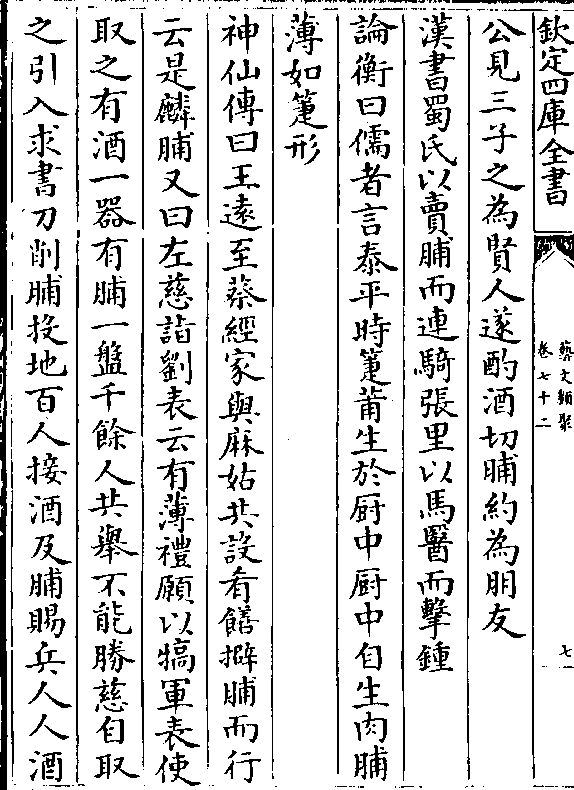 欽定四庫全書
藝文類聚
卷七十二
七
公見三子之為賢人遂酌酒切脯約為朋友
漢書蜀氏以賣脯而連騎張里以馬醫而擊鍾
論衡曰儒者言泰平時箑莆生於厨中厨中自生肉脯
薄如箑形
神仙傳曰王遠至蔡經家與麻姑共設肴饍擗脯而行
云是麟脯又曰左慈詣劉表云有薄禮願以犒軍表使
取之有酒一器有脯一盤千餘人共舉不能勝慈自取
之引入求書刀削脯投地百人接酒及脯賜兵人人酒